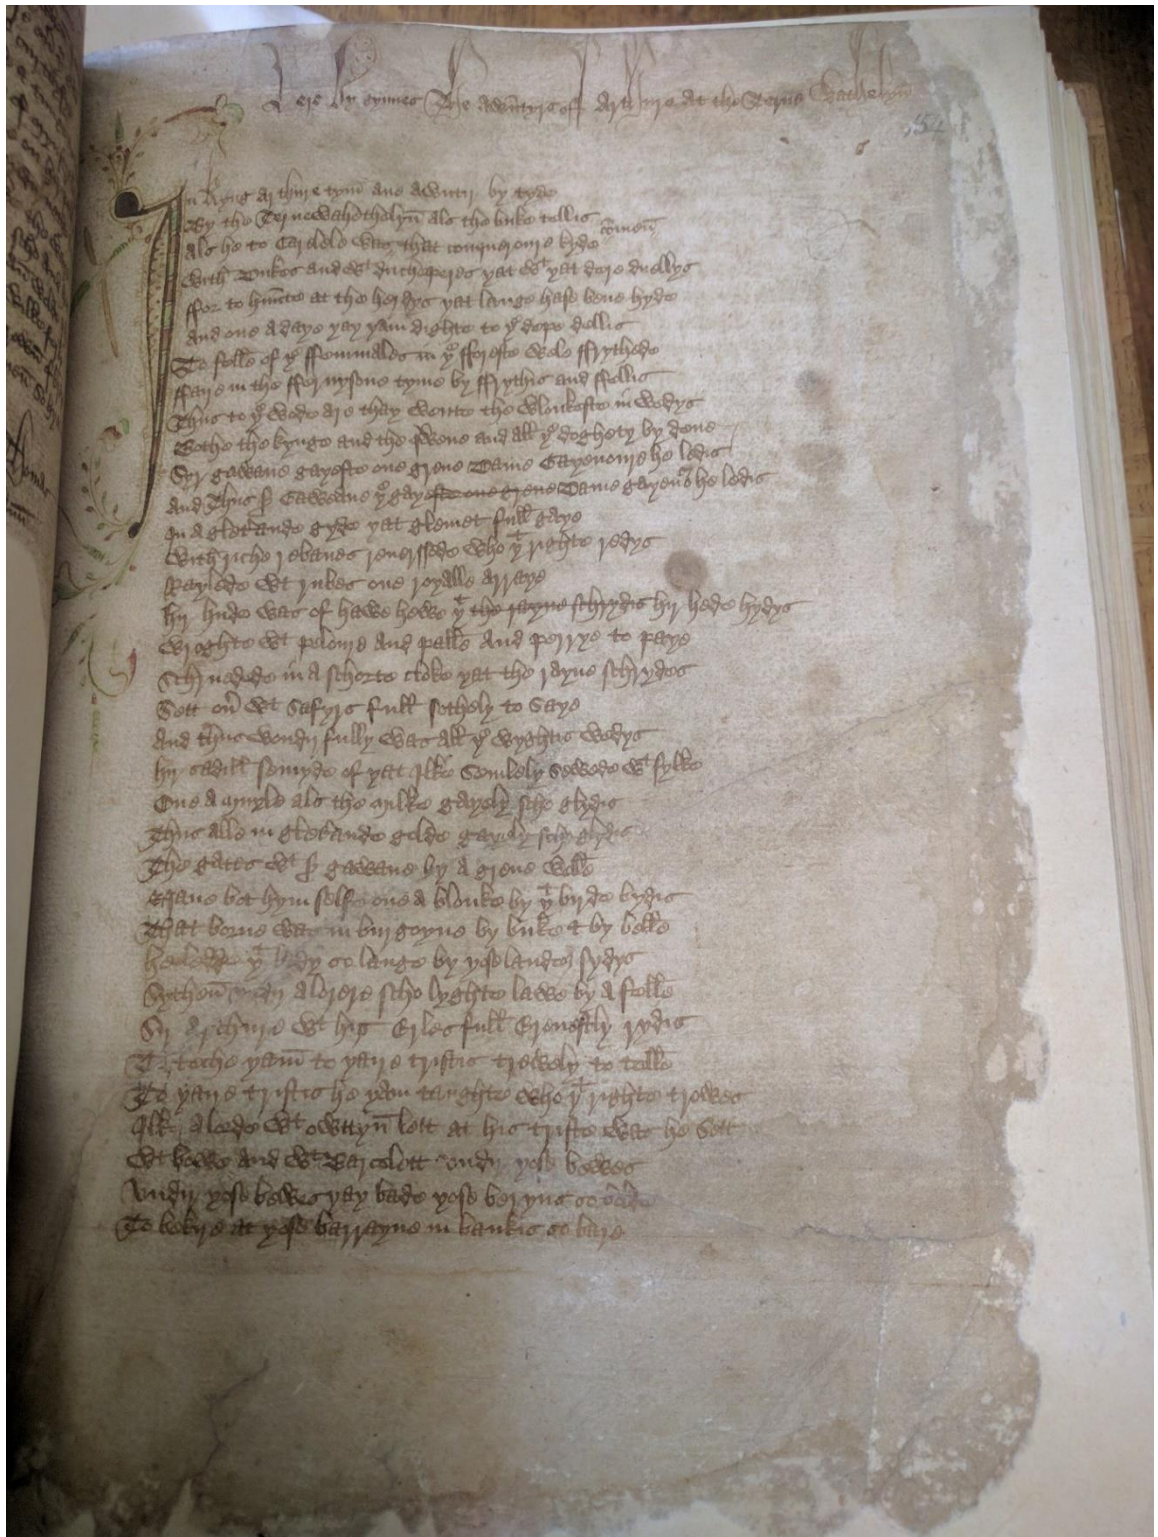 Here Bygynnes The Awntyrs off Arthure At the Terne Wathelyn
154
In Kyng Arthure tym ane awntir by tyde
By the Ternewahethelyn als the buke tellis
Als he to Carelele was comen that conquerour kyde
With Dukes and wt ducheperes yat wt yat dere duellys
ffor to hunte at the herdys yat lange hase bene hyde
And one a daye yay yam dighte to ye depe dellis
To felle of ye ffemmales in ye fforeste wele ffrythede
ffaire in the ffernysone tyme by ffrythis and ffellis
Thus to ye wode are thay wente the wlonkeste in wedys
Bothe the kynge and the qwene and all ye doghety by dene
Syr Gawane gayeste one grene Dame Gayenoure he ledis
And Thus sr Gawane ye gayeste one grene Dame gayenour he ledis
In a gleterande gyde yat glemet full gaye
With riche rebanes reuerssede who yt righte redys
Raylede wt rubes one royalle arraye
Hir hude was of hawe hewe yt the rayne schrydis hir hede hydys
Wroghte wt peloure And palle And perrye to paye
Schruedede in a schorte cloke yat the rayne schrydes
Sett ouer wt Safyrs full sothely to Saye
And thus wondirfully was all ye wyghtis wedys
Hir sadill semyde of yat Ilke Semlely Sewede wt sylke
One a muyle als the mylke gayely scho glydis
Thus alle in gleterande golde gayely scho glydis
The gates wt sr gawane by a grene welle
Nane bot hym selfe one a blonke by yt birde bydis
That borne was in burgoyne by buke & by belle
He ledde yt lady so lange by yose landes sydys
Sythen vndir a lorere scho lyghte lawe by a felle
Sir Arthure wt his Erles full Erenestly rydis
To teche yam to yaire tristis trewely to telle
To yaire tristis he yam taughte who yt righte trowes
Ilke a lorde wt owttyn lett at his triste was he Sett
Wt bowe And wt Barcelett vndir yose bewes
Vndir yose bewes yay bade yose beryns so
To bekire at yose barrayne in bankis so bare